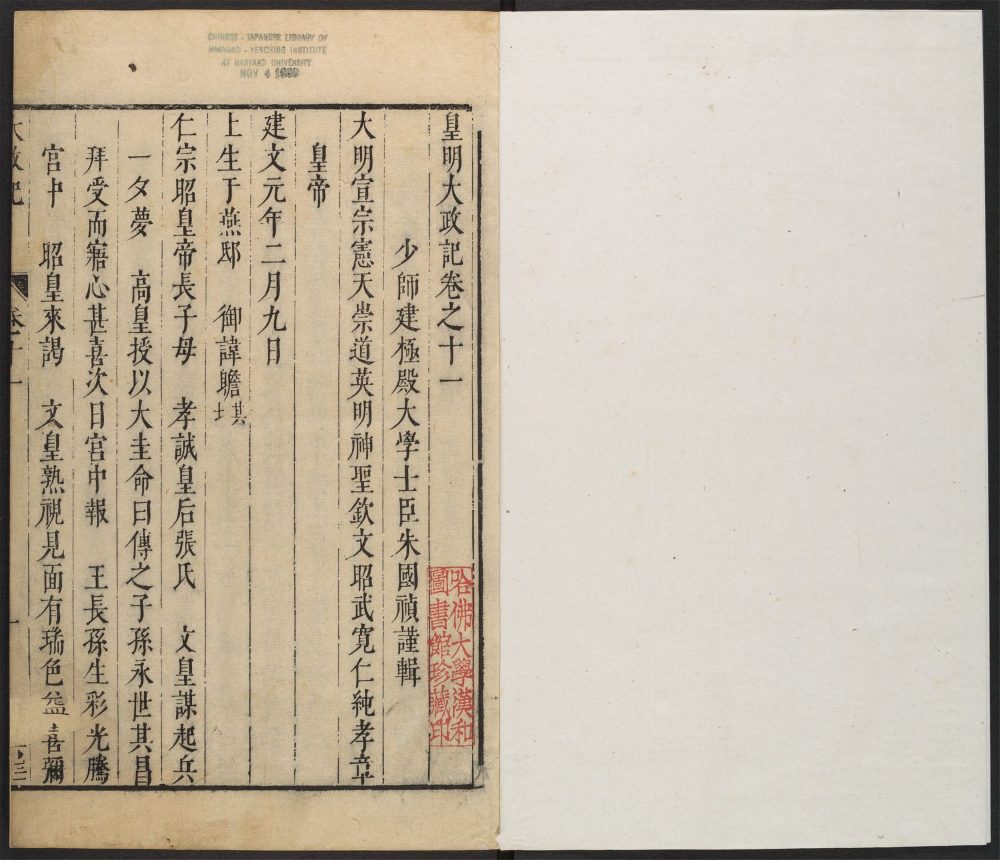 CHINESE - JAPANESE LIBRARY OF
HARVARD - YENCHING INSTITUTE
AT HARVARD UNIVERSITY
NOV 4
皇明大政記卷之十一
少師建極殿大學士臣朱國禎謹輯
大明宣宗憲天崇道英明神聖欽文昭武寬仁純孝章
皇帝
建文元年二月九日
上生于燕邸　御諱瞻基
仁宗昭皇帝長子母　孝誠皇后張氏　文皇謀起兵
一夕夢　高皇授以大圭命曰傳之子孫永世其昌
拜受而寤心甚喜次日宮中報　王長孫生彩光騰
宮中　昭皇來謁　文皇熟視見面有瑞色益喜彌
大政記　卷十一
哈佛大學漢和
圖書館珍藏印